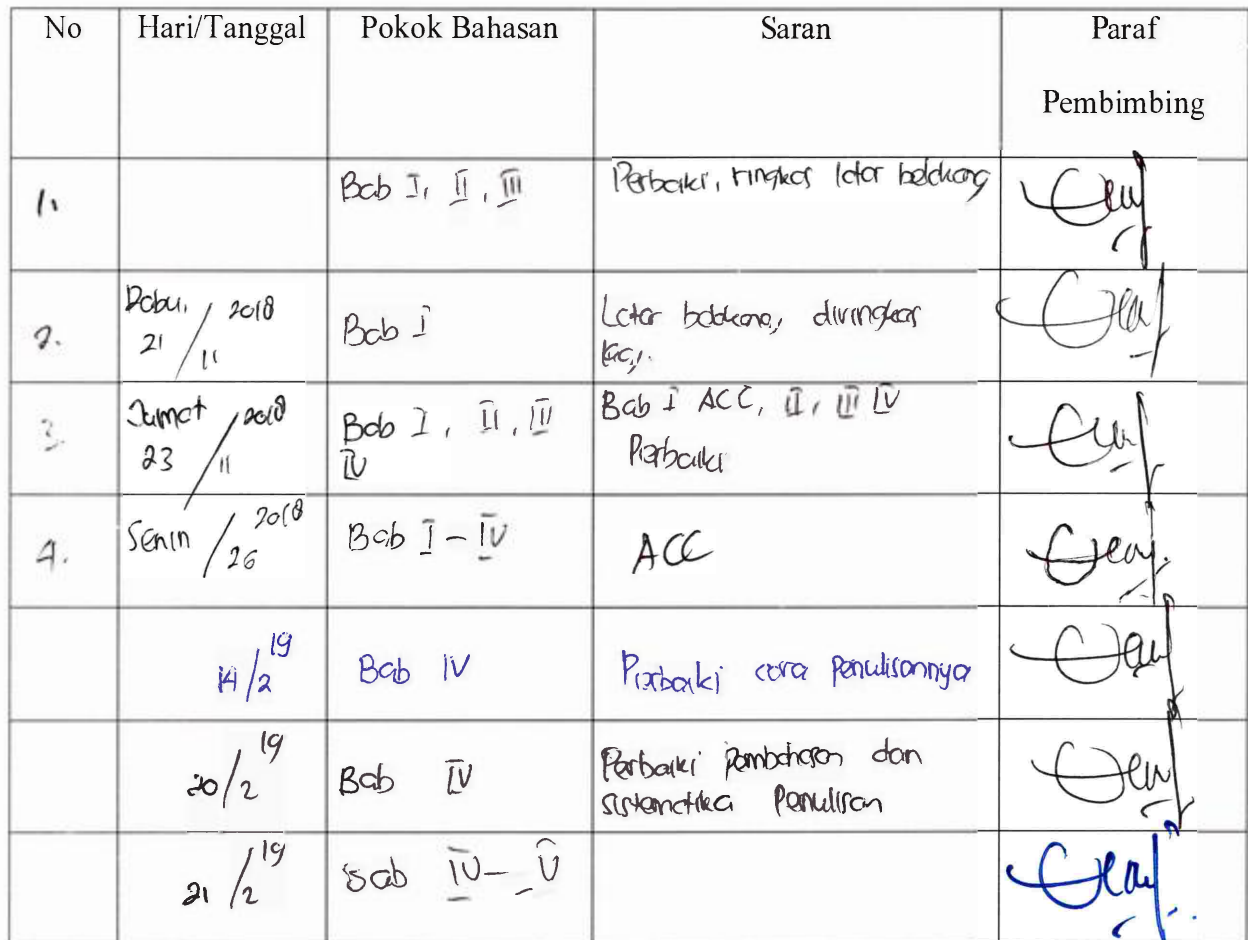 No Hari/Tanggal Pokok Bahasan Saran Paraf
Pembimbing
1. Bab I, II, III Perbaiki, ringkas latar belakang
2. Rabu, 21/11 2018 Bab I Latar belakang, diringkas
lagi.
3. Jumat 23/11 2018 Bab I, II, III Bab I ACC, II, III IV
IV Perbaiki
4. Senin /26 2018 Bab I - IV ACC
14/2 19 Bab IV Perbaiki cara Penulisannya
20/2 19 Bab IV Perbaiki pembahasan dan
sistematika Penulisan
21/2 19 Bab IV - V